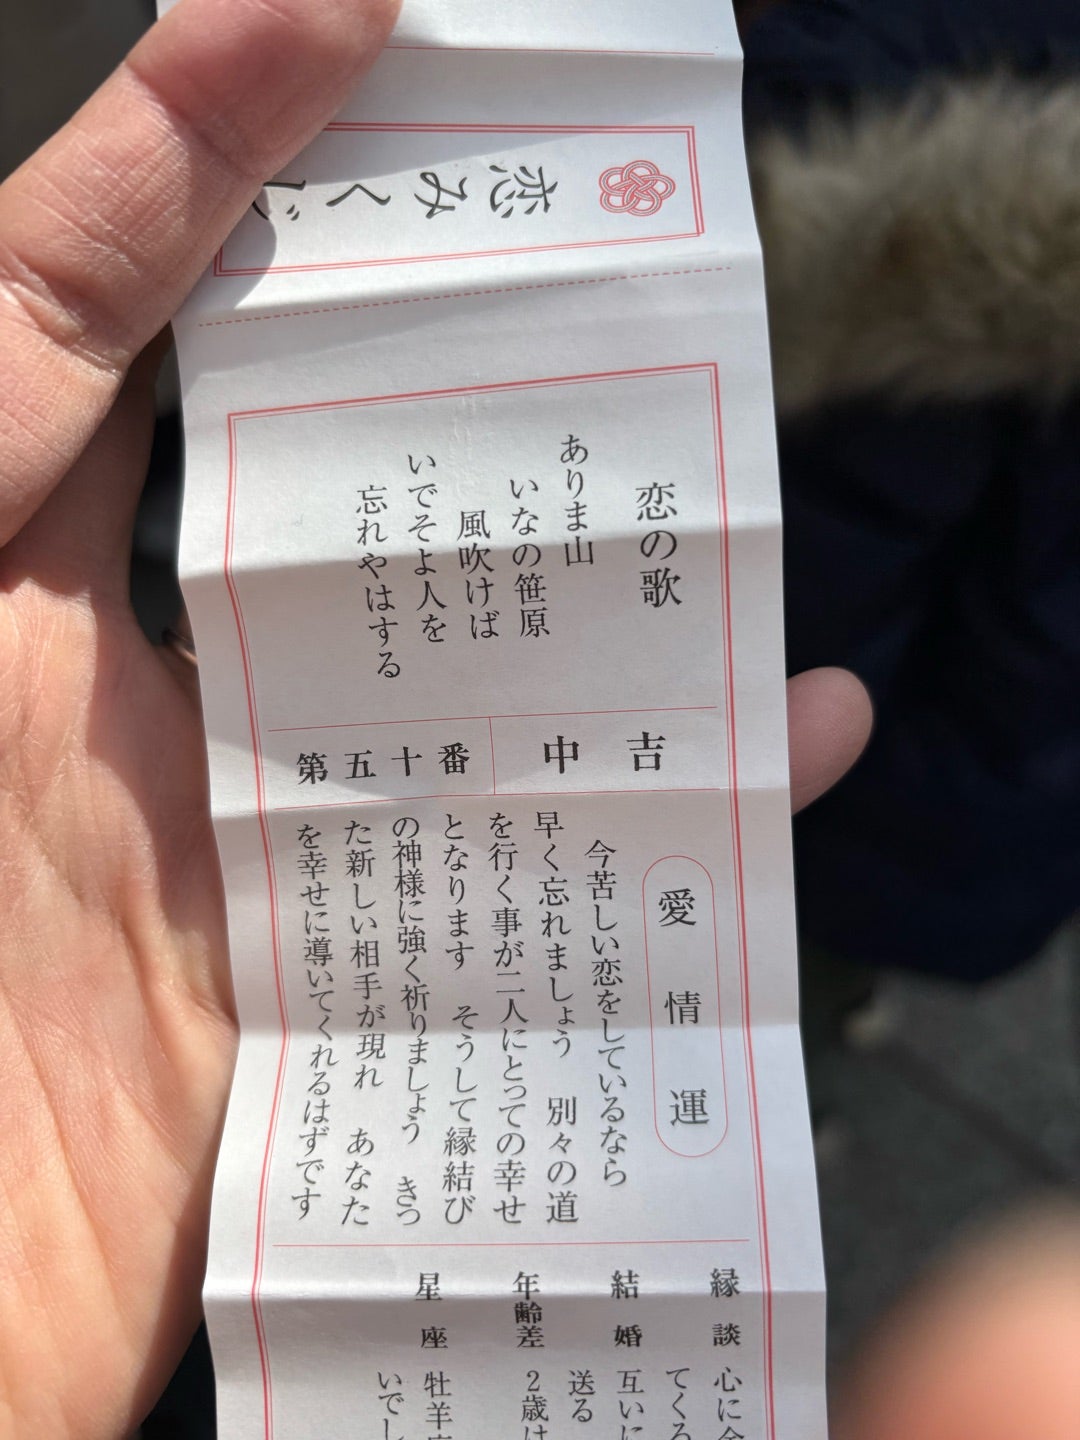 恋みくじ
恋の歌
ありま山
いなの笹原
風吹けば
いでそよ人を
忘れやはする
第五十番
中吉
愛情運
今苦しい恋をしているなら
早く忘れましょう　別々の道
を行く事が二人にとっての幸せ
となります　そうして縁結び
の神様に強く祈りましょう　きっ
た新しい相手が現れ　あなた
を幸せに導いてくれるはずです
縁談　心に余
てくる
結婚　互いに
送る
年齢差　2歳は
星座　牡羊座
いでし